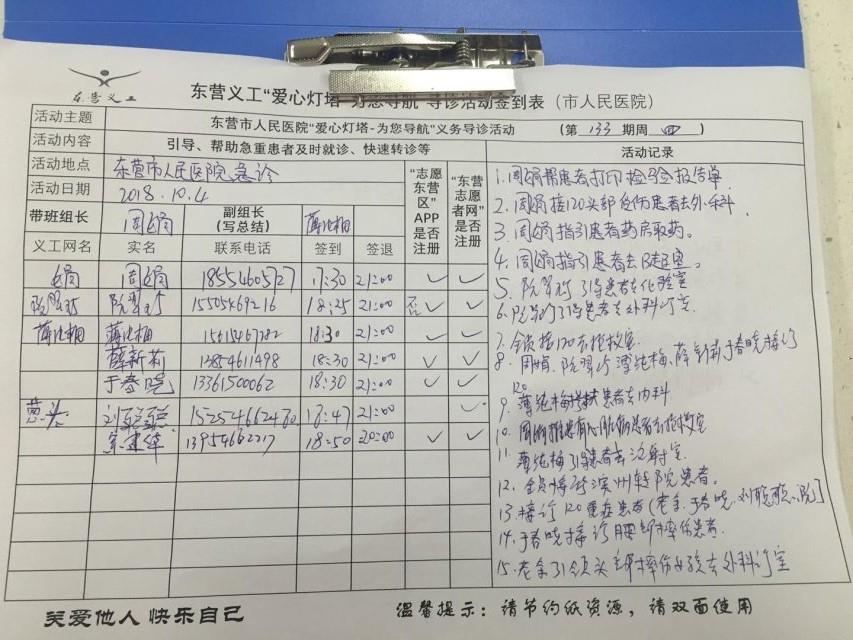 东营义工
东营义工“爱心灯塔-为您导航”导诊活动签到表（市人民医院）
活动主题 东营市人民医院“爱心灯塔-为您导航”义务导诊活动 （第 133 期周 四 ）
活动内容 引导、帮助急重患者及时就诊、快速转诊等
活动地点 东营市人民医院急诊
活动日期 2018.10.4
“志愿东营区”APP是否注册
“东营志愿者网”是否注册
活动记录
带班组长 周娟 副组长（写总结） 薄纯梅
义工网名 实名 联系电话 签到 签退
娟 周娟 18554605727 17:30 21:00
阮翠巧 阮翠巧 15505469216 18:25 21:00
薄纯梅 薄纯梅 18:30 21:00
薛新莉 13854611498 18:30 21:00
于春晓 13361500062 18:30 21:00
葱头 刘聪聪 15254662430 18:47 21:00
宋建华 13954662217 18:50 20:00
1.周娟帮患者打印检验报告单
2.周娟接120头部外伤患者去外科
3.周娟指引患者药房取药。
4.周娟指引患者去B超室。
5.阮翠巧引导患者去化验室
6.阮翠巧引导患者去外科门诊室
7.全员接120去抢救室
8.周娟、阮翠巧、薄纯梅、薛新莉、于春晓接诊120
9.薄纯梅搀扶患者去内科
10.周娟推患有心脏病患者去抢救室
11.薄纯梅引导患者去注射室
12.全员接诊滨州转院患者。
13.接诊120重症患者（老宋、于春晓、刘聪聪、阮）
14.于春晓接诊腰部摔伤患者.
15.老宋引领头部摔伤女孩去外科门诊室
关爱他人 快乐自己
温馨提示：请节约纸资源，请双面使用